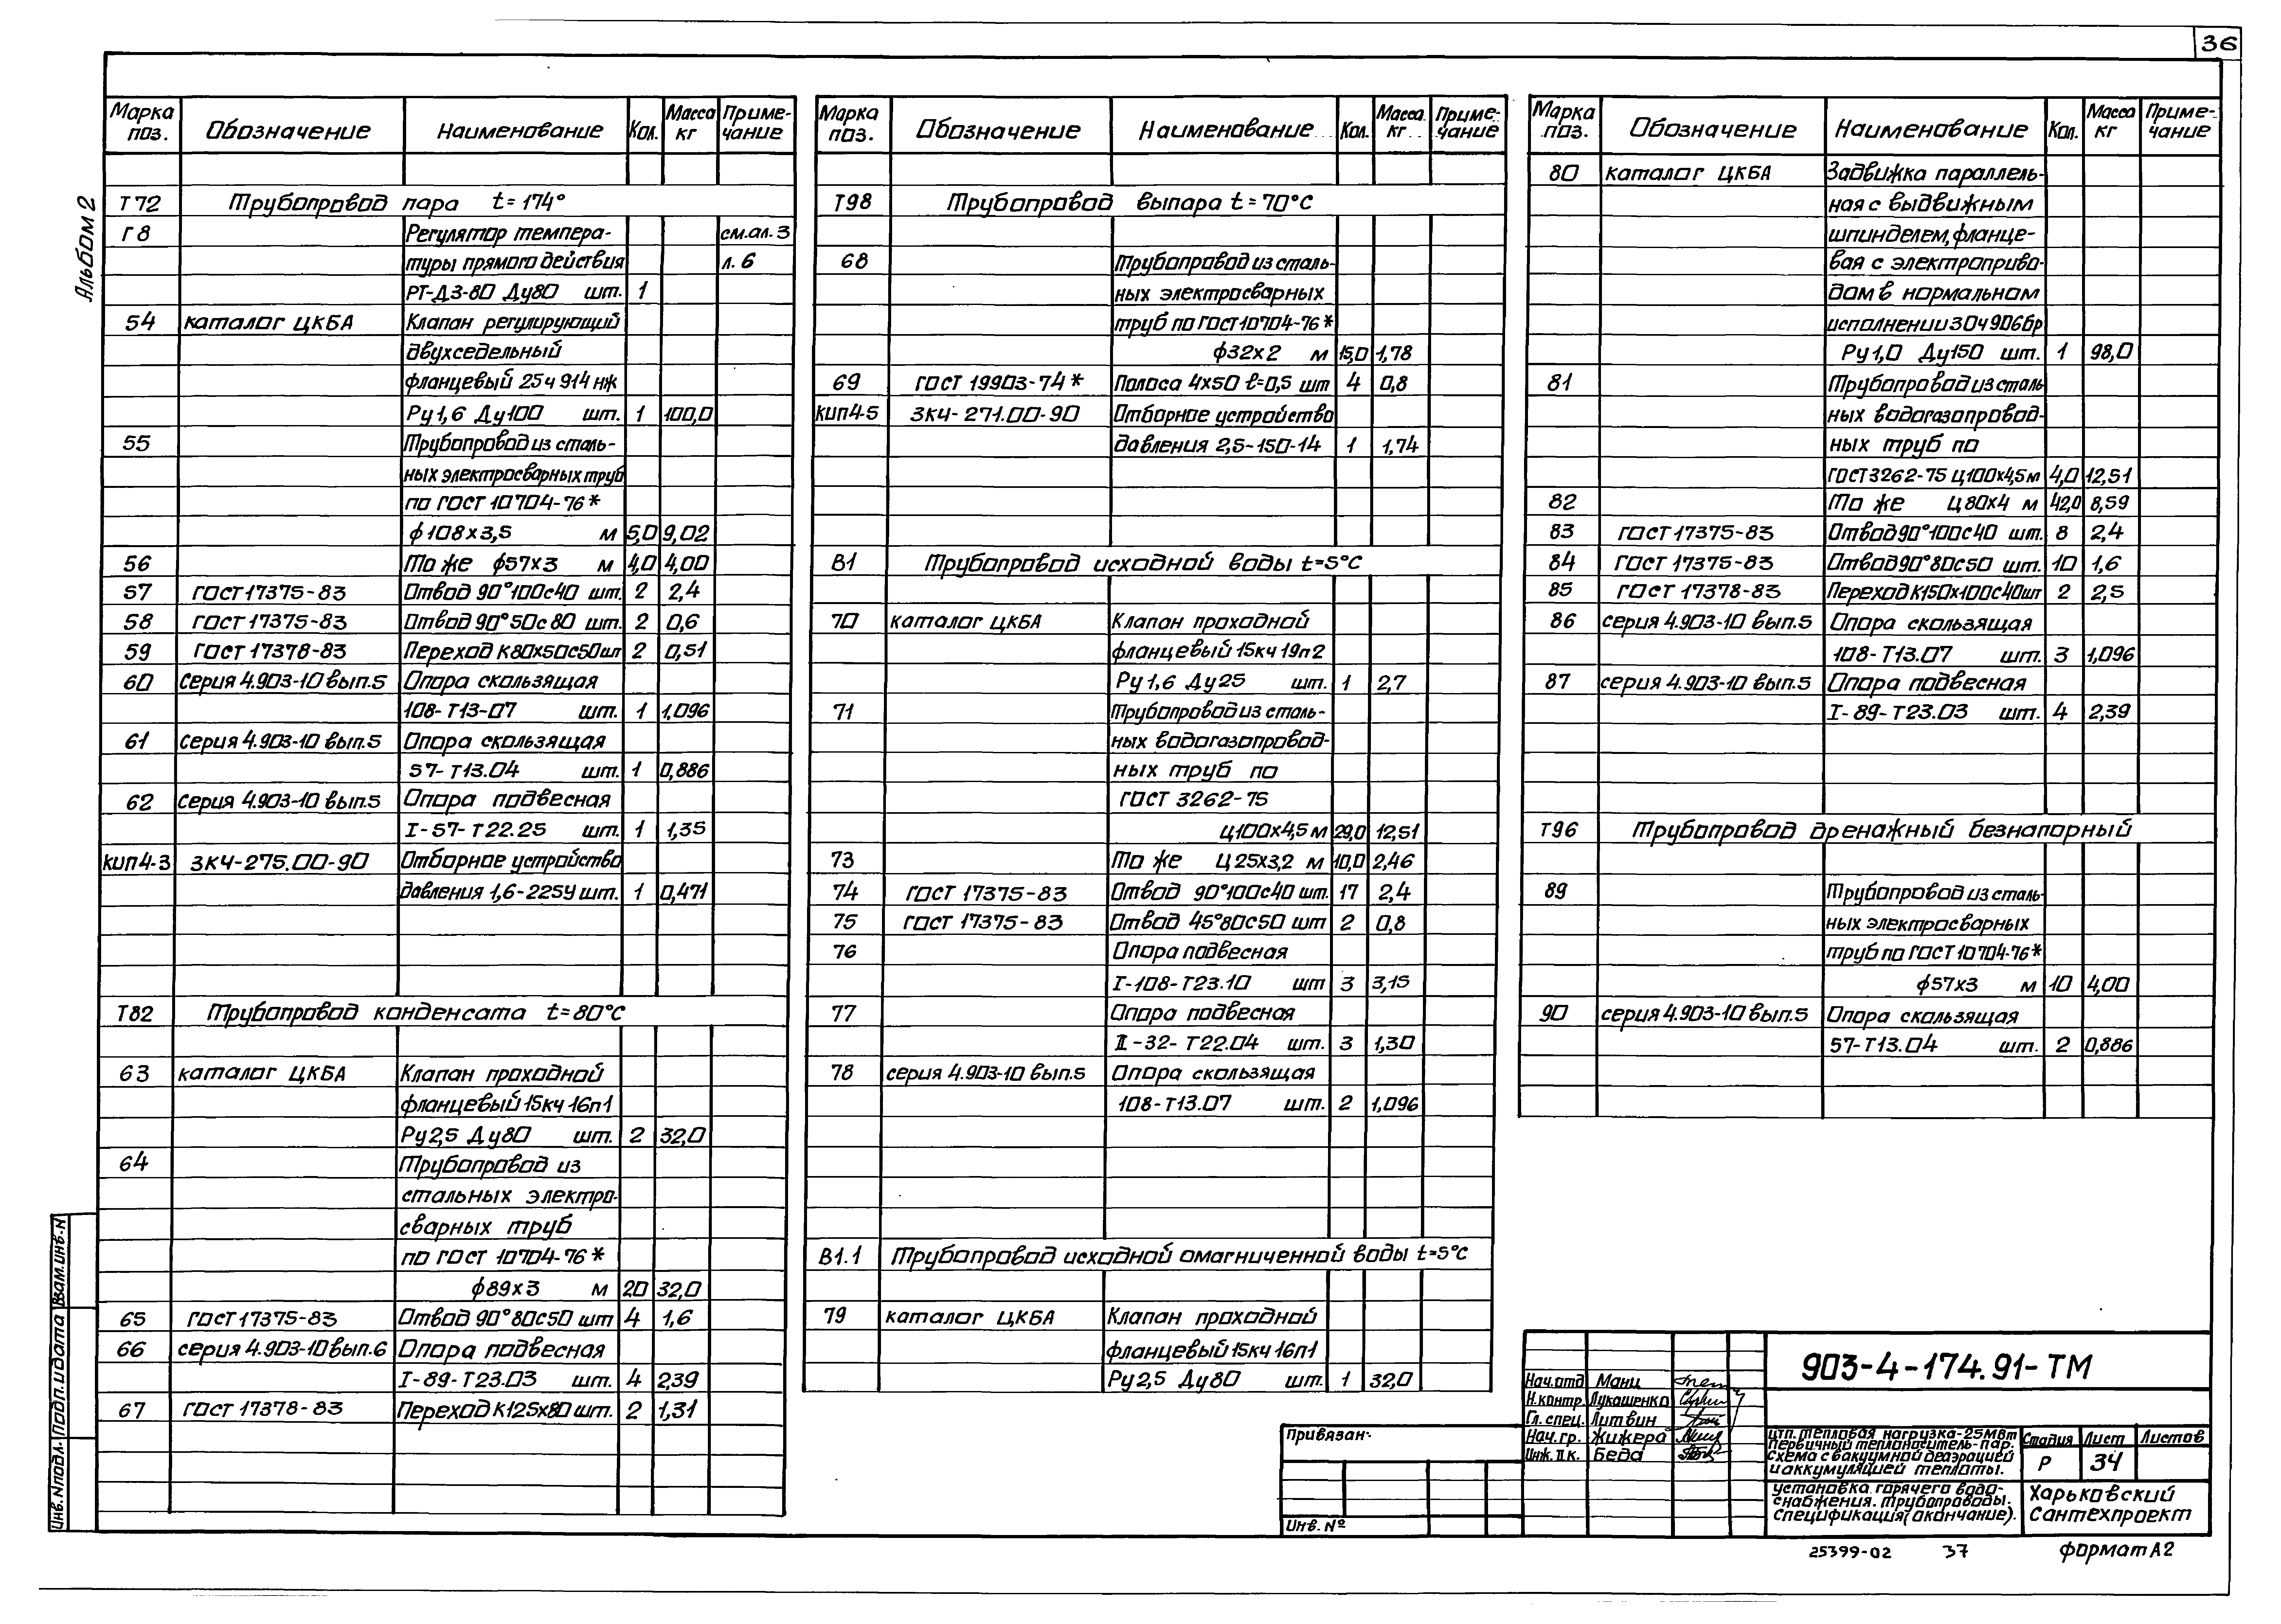 36
Альбом 2
Марка поз. Обозначение Наименование Кол. Масса кг Приме-чание
Т72 Трубопровод пара t=174°
Г8 Регулятор темпера- см.ал.3
туры прямого действия л.6
РТ-ДЗ-80 Ду80 шт. 1
54 каталог ЦКБА Клапан регулирующий
двухседельный
фланцевый 25ч914нж
Ру1,6 Ду100 шт. 1 100,0
55 Трубопровод из сталь-
ных электросварных труб
по ГОСТ 10704-76*
ф108х3,5 м 5,0 9,02
56 То же ф57х3 м 4,0 4,00
57 ГОСТ 17375-83 Отвод 90°100с40 шт. 2 2,4
58 ГОСТ 17375-83 Отвод 90°50с80 шт. 2 0,6
59 ГОСТ 17378-83 Переход К80х50с50шт 2 0,51
60 Серия 4.903-10 вып.5 Опора скользящая
108-Т13-07 шт. 1 1,096
61 Серия 4.903-10 вып.5 Опора скользящая
57-Т13.04 шт. 1 0,886
62 Серия 4.903-10 вып.5 Опора подвесная
I-57-Т22.25 шт. 1 1,35
КИП4-3 ЗКЧ-275.00-90 Отборное устройство
давления 1,6-225У шт. 1 0,471
Т82 Трубопровод конденсата t=80°С
63 каталог ЦКБА Клапан проходной
фланцевый 15кч16п1
Ру2,5 Ду80 шт. 2 32,0
64 Трубопровод из
стальных электро-
сварных труб
по ГОСТ 10704-76*
ф89х3 м 20 32,0
65 ГОСТ 17375-83 Отвод 90°80с50 шт 4 1,6
66 серия 4.903-10 вып.6 Опора подвесная
I-89-Т23.03 шт. 4 2,39
67 ГОСТ 17378-83 Переход К125х80 шт. 2 1,31
Марка поз. Обозначение Наименование Кол. Масса кг Приме-чание
Т98 Трубопровод выпара t=70°С
68 Трубопровод из сталь-
ных электросварных
труб по ГОСТ 10704-76*
ф32х2 м 15,0 1,78
69 ГОСТ 19903-74* Полоса 4х50 ℓ=0,5 шт 4 0,8
КИП4-5 ЗКЧ-271.00-90 Отборное устройство
давления 2,5-150-14 1 1,74
В1 Трубопровод исходной воды t=5°С
70 каталог ЦКБА Клапан проходной
фланцевый 15кч19п2
Ру1,6 Ду25 шт. 1 2,7
71 Трубопровод из сталь-
ных водогазопровод-
ных труб по
ГОСТ 3262-75
Ц100х4,5 м 29,0 12,51
73 То же Ц25х3,2 м 10,0 2,46
74 ГОСТ 17375-83 Отвод 90°100с40 шт. 17 2,4
75 ГОСТ 17375-83 Отвод 45°80с50 шт 2 0,8
76 Опора подвесная
I-108-Т23.10 шт 3 3,15
77 Опора подвесная
II-32-Т22.04 шт. 3 1,30
78 серия 4.903-10 вып.5 Опора скользящая
108-Т13.07 шт. 2 1,096
В1.1 Трубопровод исходной омагниченной воды t=5°С
79 каталог ЦКБА Клапан проходной
фланцевый 15кч16п1
Ру2,5 Ду80 шт. 1 32,0
Марка поз. Обозначение Наименование Кол. Масса кг Приме-чание
80 каталог ЦКБА Задвижка параллель-
ная с выдвижным
шпинделем, фланце-
вая с электроприво-
дом в нормальном
исполнении 30ч906бр
Ру1,0 Ду150 шт. 1 98,0
81 Трубопровод из сталь
ных водогазопровод-
ных труб по
ГОСТ 3262-75 Ц100х4,5 м 4,0 12,51
82 То же Ц80х4 м 42,0 8,59
83 ГОСТ 17375-83 Отвод 90°100с40 шт. 8 2,4
84 ГОСТ 17375-83 Отвод 90°80с50 шт. 10 1,6
85 ГОСТ 17378-83 Переход К150х100с40шт 2 2,5
86 серия 4.903-10 вып.5 Опора скользящая
108-Т13.07 шт. 3 1,096
87 серия 4.903-10 вып.5 Опора подвесная
I-89-Т23.03 шт. 4 2,39
Т96 Трубопровод дренажный безнапорный
89 Трубопровод из сталь-
ных электросварных
труб по ГОСТ 10704-76*
ф57х3 м 10 4,00
90 серия 4.903-10 вып.5 Опора скользящая
57-Т13.04 шт. 2 0,886
Взам.инв.N
Подп. и дата
Инв.Nподл.
Привязан
Инв.№
903-4-174.91-ТМ
Нач.отд Манц
Н.контр. Лукашенко
Гл.спец. Литвин
Нач.гр. Жижера
Инж.IIк. Беда
ЦТП. Тепловая нагрузка-25МВт
Первичный теплоноситель-пар.
Схема с вакуумной деаэрацией
и аккумуляцией теплоты.
Стадия Лист Листов
Р 34
Установка горячего водо-
снабжения. Трубопроводы.
Спецификация (окончание).
Харьковский
Сантехпроект
25399-02 37 формат А2